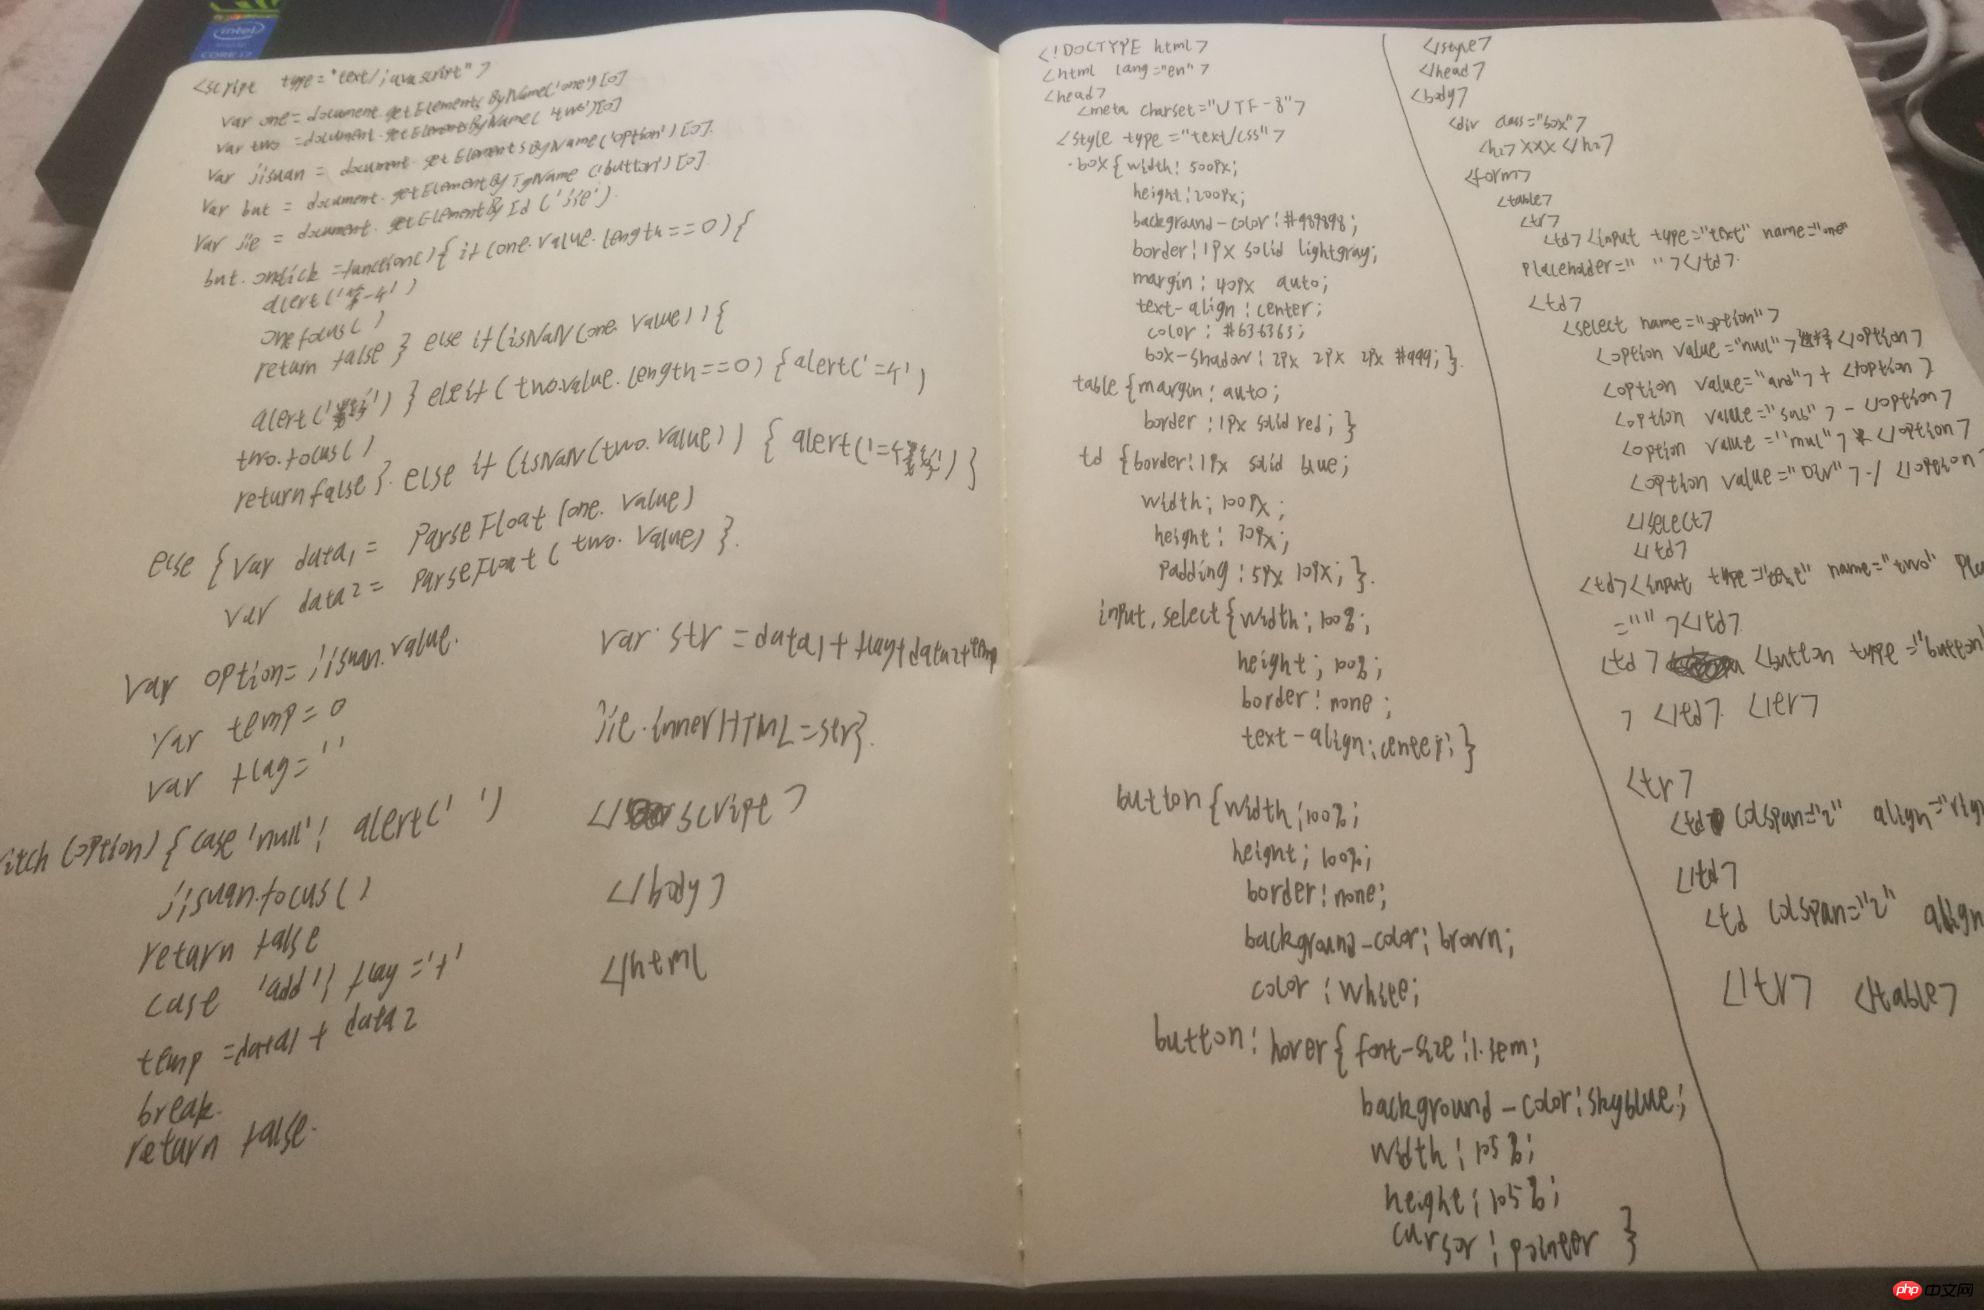 intel
CORE i7
<script type="text/javascript">
var one=document.getElementsByName('one')[0]
var two=document.getElementsByName('two')[0]
var jisuan = document.getElementsByName('option')[0].
var but = document.getElementByTgName('button')[0].
var jie = document.getElementById('jie').
but.onclick=function(){if(one.value.length==0){
alert('第一个')
one.focus()
return false } else if(isNaN(one.value)){
alert(' ') } else if(two.value.length==0) {alert('二个')
two.focus()
return false }. else if(isNaN(two.value)) { alert('二个 ') }
else {var data1= parseFloat(one.value)
var data2= parseFloat(two.value) }.
var option=jisuan.value.
var temp=0
var flag=' '
itch (option) {case 'null': alert(' ')
jisuan.focus()
return false
case 'add': flag='+'
temp=data1+data2
break.
return false.
var str=data1+flag+data2+temp
jie.innerHTML=str}.
</script>
</body>
</html
<!DOCTYPE html>
<html lang="en">
<head>
<meta charset="UTF-8">
<style type="text/css">
.box{width:500px;
height:200px;
background-color:#989898;
border:1px solid lightgray;
margin:40px auto;
text-align:center;
color:#636363;
box-shadow:2px 2px 2px #999;}.
table{margin:auto;
border:1px solid red;}
td {border:1px solid blue;
width:100px;
height:30px;
padding:5px 10px;}.
input,select{width:100%;
height:100%;
border:none;
text-align:center;}
button{width:100%;
height:100%;
border:none;
background-color:brown;
color:white;
button:hover{font-size:1.5em;
background-color:skyblue;
width:105%;
height:105%;
cursor:pointer }
</style>
</head>
<body>
<div class="box">
<h2>XXX</h2>
<form>
<table>
<tr>
<td><input type="text" name="one"
placehoder=" "></td>.
<td>
<select name="option">
<option value="null">选择</option>
<option value="and">+</option>
<option value="sub">-</option>
<option value="mul">*</option>
<option value="DIV">/</option
</select>
</td>
<td><input type="text" name="two" ple
=""></td>.
<td> <button type="button"
> </td>. </tr>
<tr>
<td colspan="2" align="righ
</td>
<td colspan="2" align
</tr> </table>
php 中文网